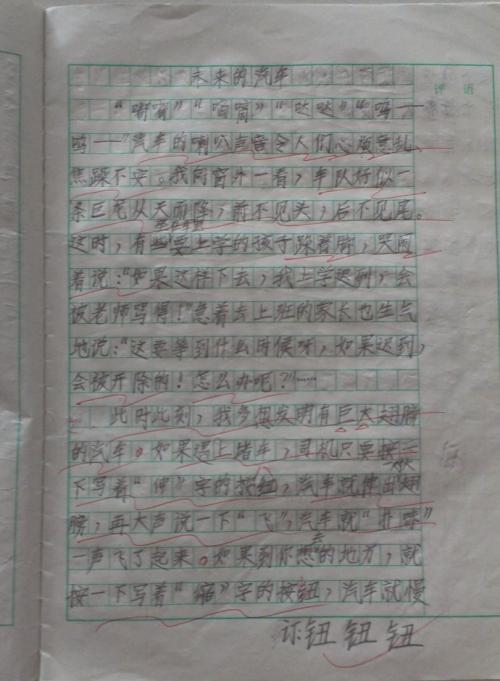 未来的汽车
评语
"嘀嘀""嘀嘀""哒哒""呜一
呜一"汽车的喇叭声音令人们心烦意乱、
焦躁不安。我向窗外一看,车队好似一
条巨龙从天而降,前不见头,后不见尾。
这时,有些要上学的孩子跺着脚,哭闹
着说:"如果这样下去,我上学迟到,会
被老师骂得!"急着去上班的家长也生气
地说:"这要等到什么时候呀,如果迟到,
会被开除的!怎么办呢?"……
此时此刻,我多想发明有巨大翅膀
的汽车。如果遇上堵车,司机只要按一
下写着"伸"字的按钮,汽车就伸出翅
膀,再大声说一下"飞",汽车就""
一声飞了起来。如果到你想去的地方,就
按一下写着"缩"字的按钮,汽车就慢
订:钮 钮 钮